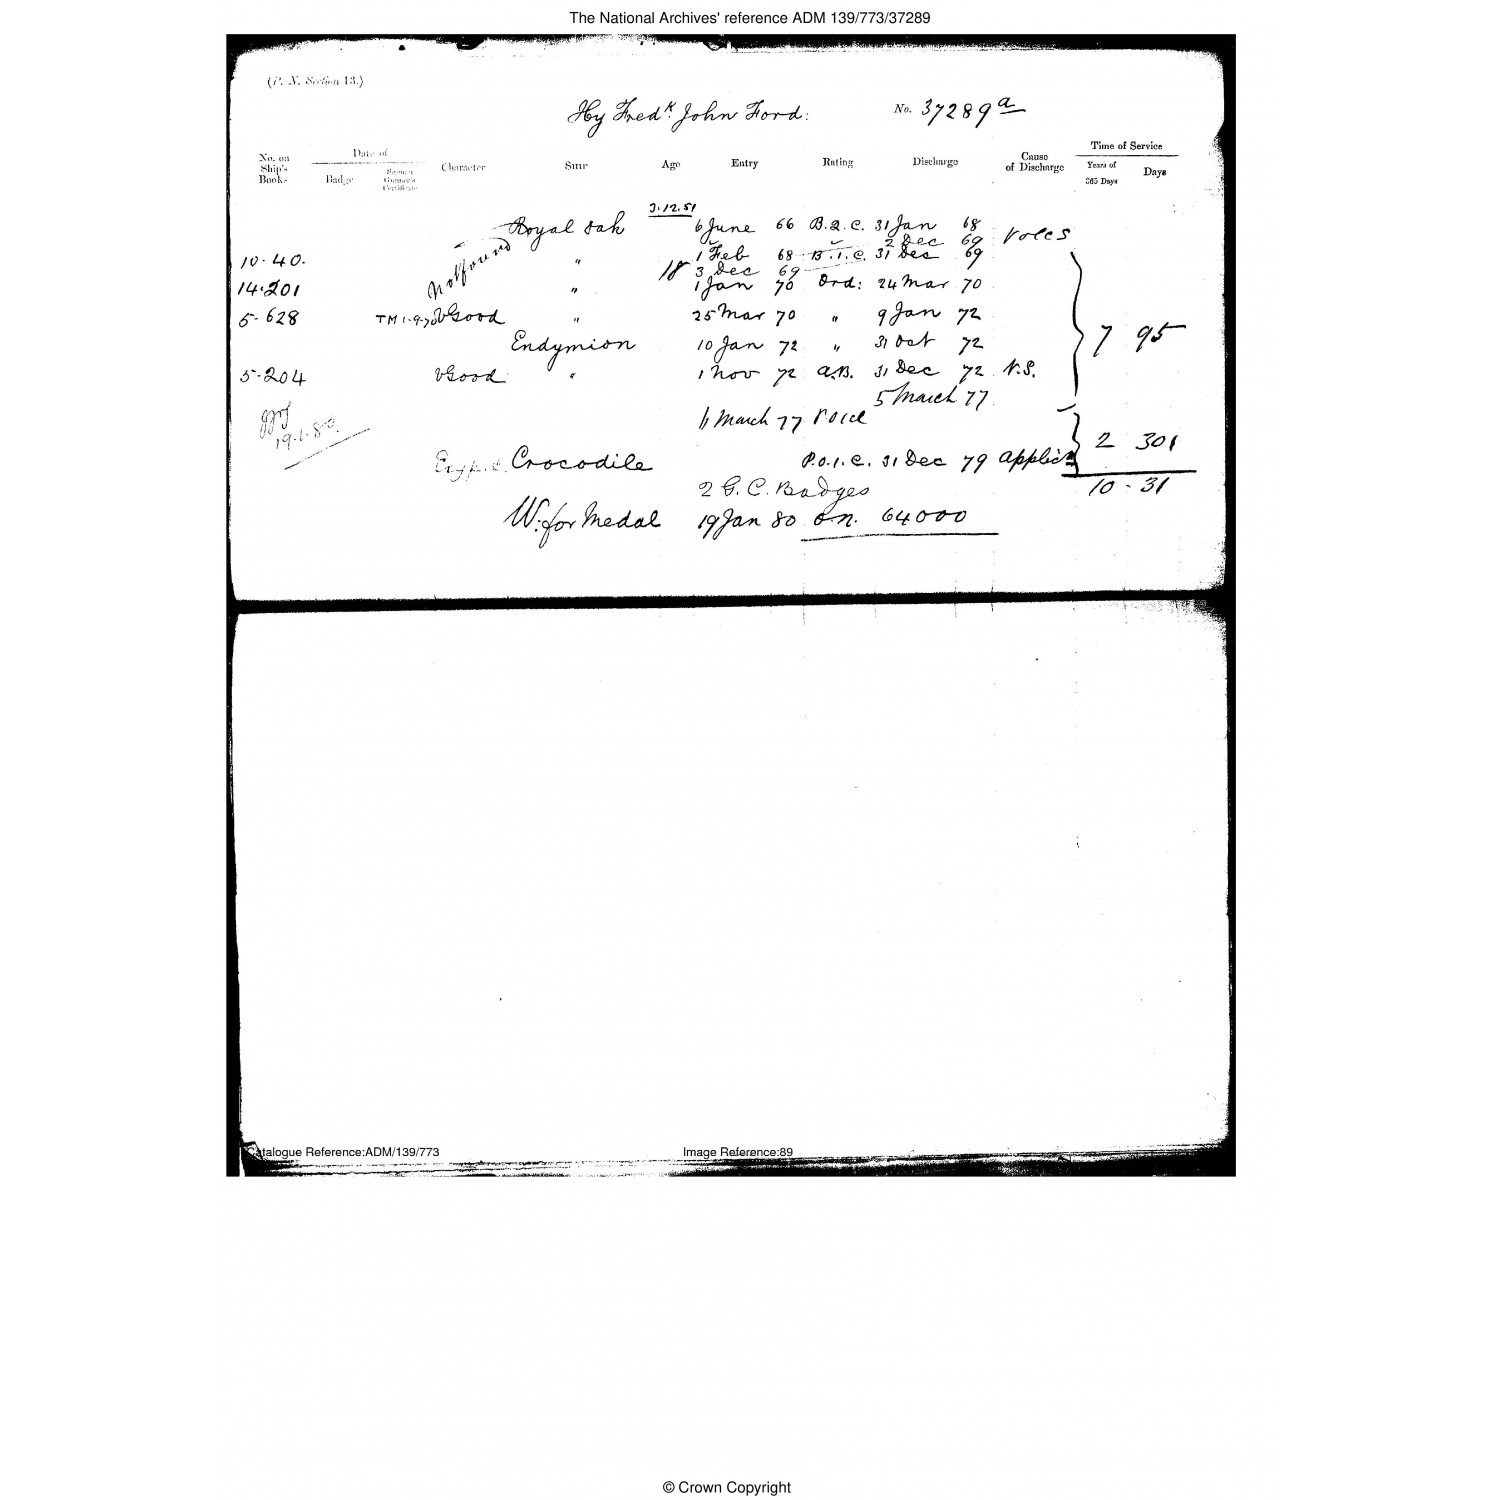 The National Archives' reference ADM 139/773/37289
(P. N. Section 13.)
Hy Fredk. John Ford: No. 37289 a
No. on Ship's Books Date of Badge Seaman Gunner's Certificate Character Ship Age Entry Rating Discharge Cause of Discharge Time of Service Years of 365 Days Days
3.12.51
Royal Oak 6 June 66 B.2.C. 31 Jan 68
2 Dec 69 Voles
10.40. Not found " 1 Feb 68 B.1.C. 31 Dec 69
18 3 Dec 69
14.201 " 1 Jan 70 Ord: 24 Mar 70
5.628 TM 1.9.70 VGood " 25 Mar 70 " 9 Jan 72
Endymion 10 Jan 72 " 31 Oct 72 7 95
5.204 VGood " 1 Nov 72 A.B. 31 Dec 72 N.S.
5 March 77
19.1.80. 6 March 77
2 301
Crocodile P.O.1.C. 31 Dec 79 Applicn
10 - 31
2 G.C. Badges
W. for Medal 19 Jan 80 O.N. 64000
Catalogue Reference:ADM/139/773 Image Reference:89
© Crown Copyright